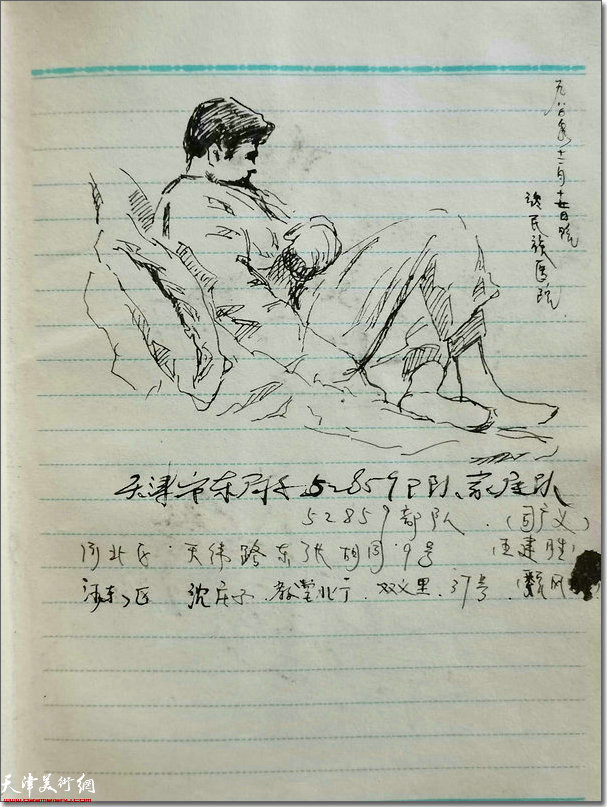 九八〇年十二月十七日晚
民族医院
天津市东局子52859部队家属队
52859部队
河北区 天纬路东张胡同9号 (王建胜)
河东区 沈庄子 教堂北 双义里 37号
天津美術網